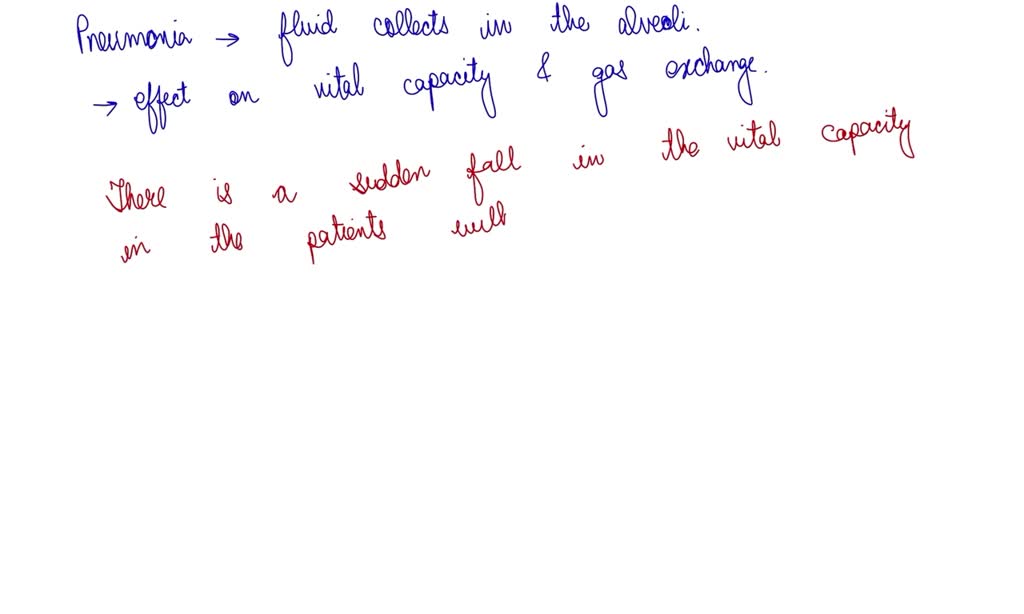 Pneumonia → fluid collects in the alveoli.
→ effect on vital capacity & gas exchange.
There is a sudden fall in the vital capacity
in the patients